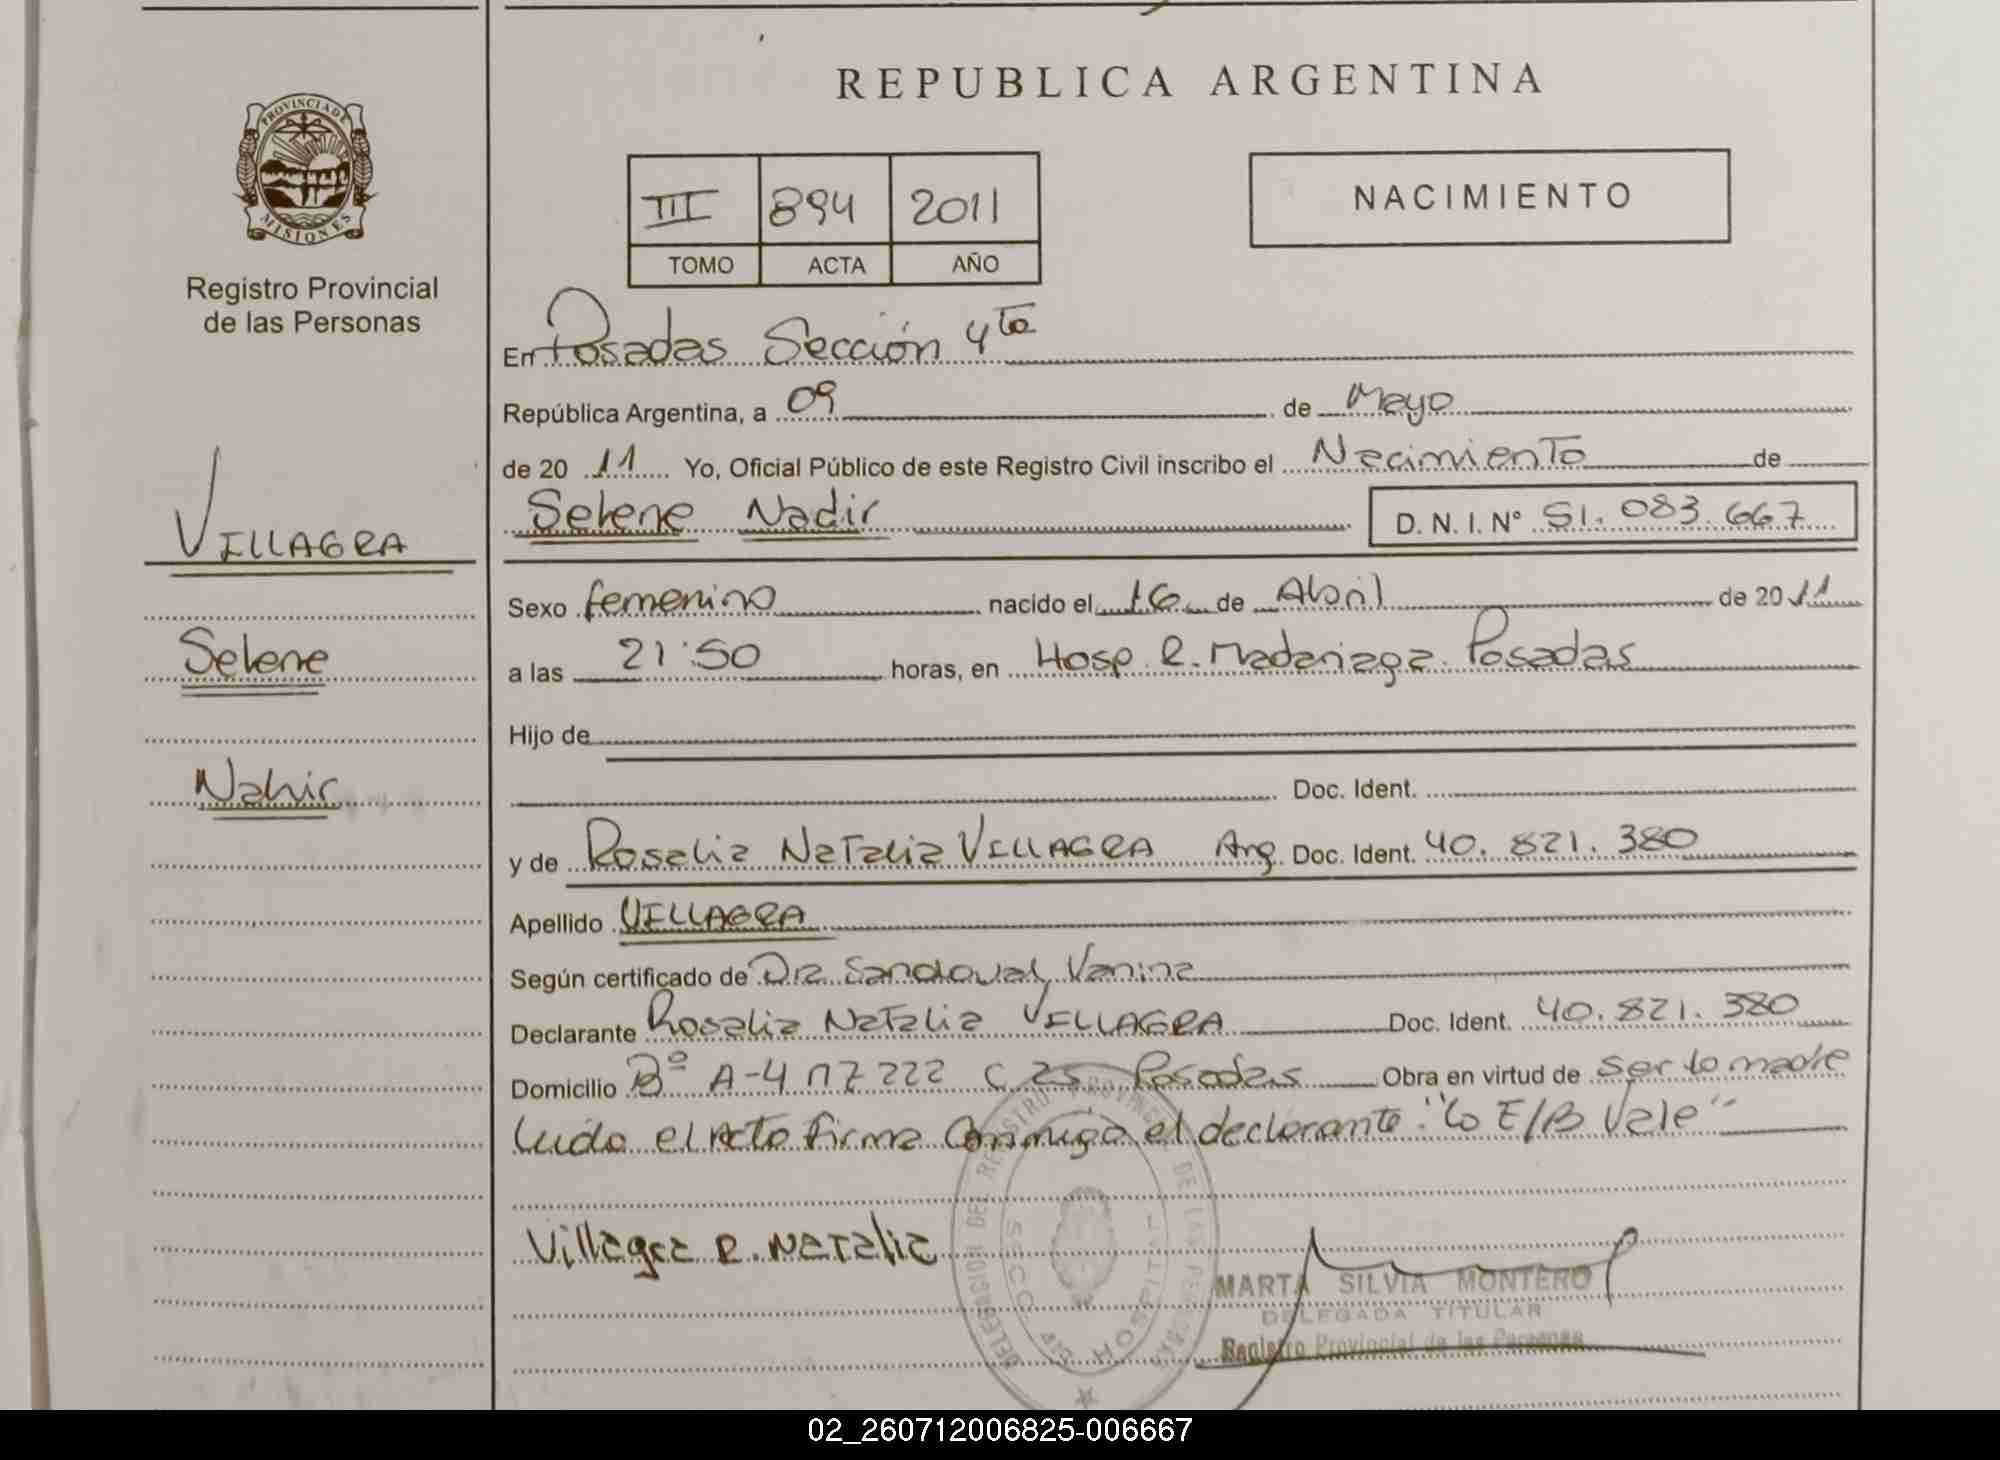 REPUBLICA ARGENTINA
PROVINCIA DE
MISIONES
Registro Provincial
de las Personas
III 894 2011
TOMO ACTA AÑO
NACIMIENTO
En Posadas Sección 4ta
República Argentina, a 09 de Mayo
de 20 11 Yo, Oficial Público de este Registro Civil inscribo el Nacimiento de
Selene Nadir D. N. I. N° 51. 083. 667
VILLAGRA
Sexo femenino nacido el 16 de Abril de 20 11
Selene
a las 21:50 horas, en Hosp. R. Madariaga. Posadas
Hijo de
Nahir
Doc. Ident.
y de Rosalia Natalia VILLAGRA Arg. Doc. Ident. 40. 821. 380
Apellido VILLAGRA
Según certificado de Dra Sandoval, Vanina
Declarante Rosalia Natalia VILLAGRA Doc. Ident. 40. 821. 380
Domicilio Bº A-4 MZ 222 C 25 Posadas Obra en virtud de ser la madre
Leida el Acta firma conmigo el declarante. "Lo E/B Vale"
Villagra R. Natalia
DELEGACION DEL REGISTRO PROVINCIAL DE LAS PERSONAS
SECC. 4ta HOSPITAL
MARTA SILVIA MONTERO
DELEGADA TITULAR
Registro Provincial de las Personas
02_260712006825-006667